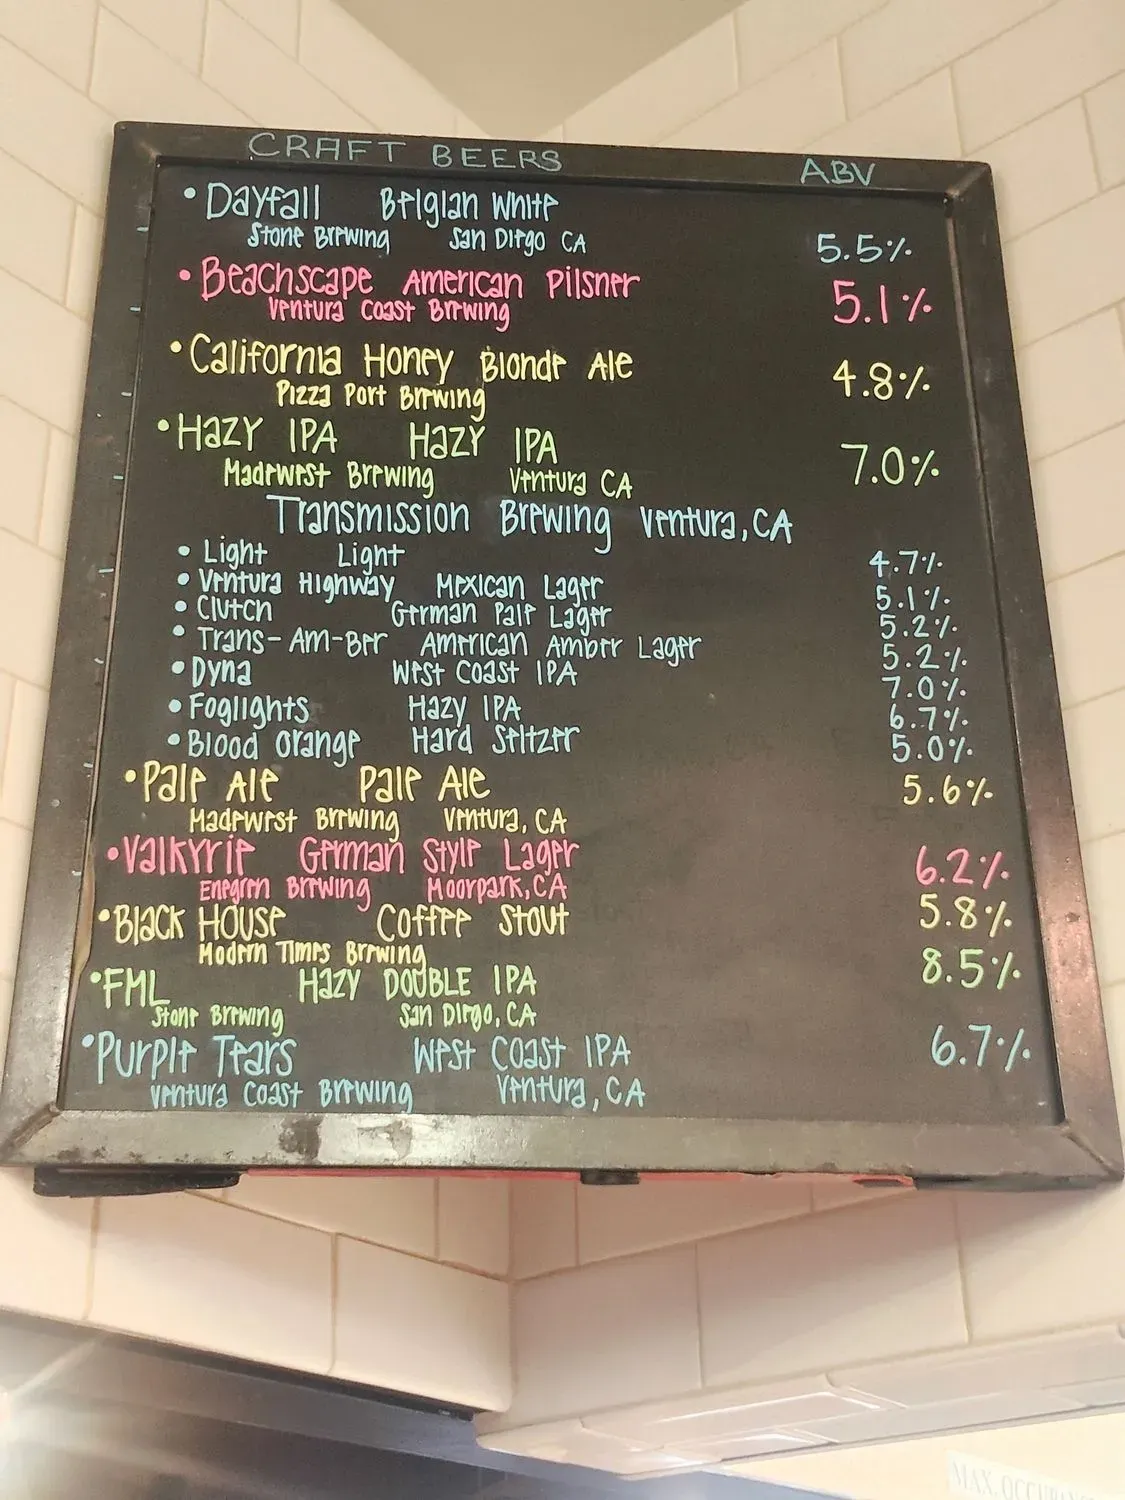 CRAFT BEERS ABV
• Dayfall Belgian White
Stone Brewing San Diego CA 5.5%
• Beachscape American Pilsner
Ventura Coast Brewing 5.1%
• California Honey Blonde Ale
Pizza Port Brewing 4.8%
• Hazy IPA Hazy IPA
Madewest Brewing Ventura CA 7.0%
Transmission Brewing Ventura, CA
• Light Light 4.7%
• Ventura Highway Mexican Lager 5.1%
• Clutch German Pale Lager 5.2%
• Trans-Am-Ber American Amber Lager 5.2%
• Dyna West Coast IPA 7.0%
• Foglights Hazy IPA 6.7%
• Blood Orange Hard Seltzer 5.0%
• Pale Ale Pale Ale 5.6%
Madewest Brewing Ventura, CA
• Valkyrie German Style Lager 6.2%
Enegren Brewing Moorpark, CA
• Black House Coffee Stout 5.8%
Modern Times Brewing
• FML Hazy Double IPA 8.5%
Stone Brewing San Diego, CA
• Purple Tears West Coast IPA 6.7%
Ventura Coast Brewing Ventura, CA
MAX.